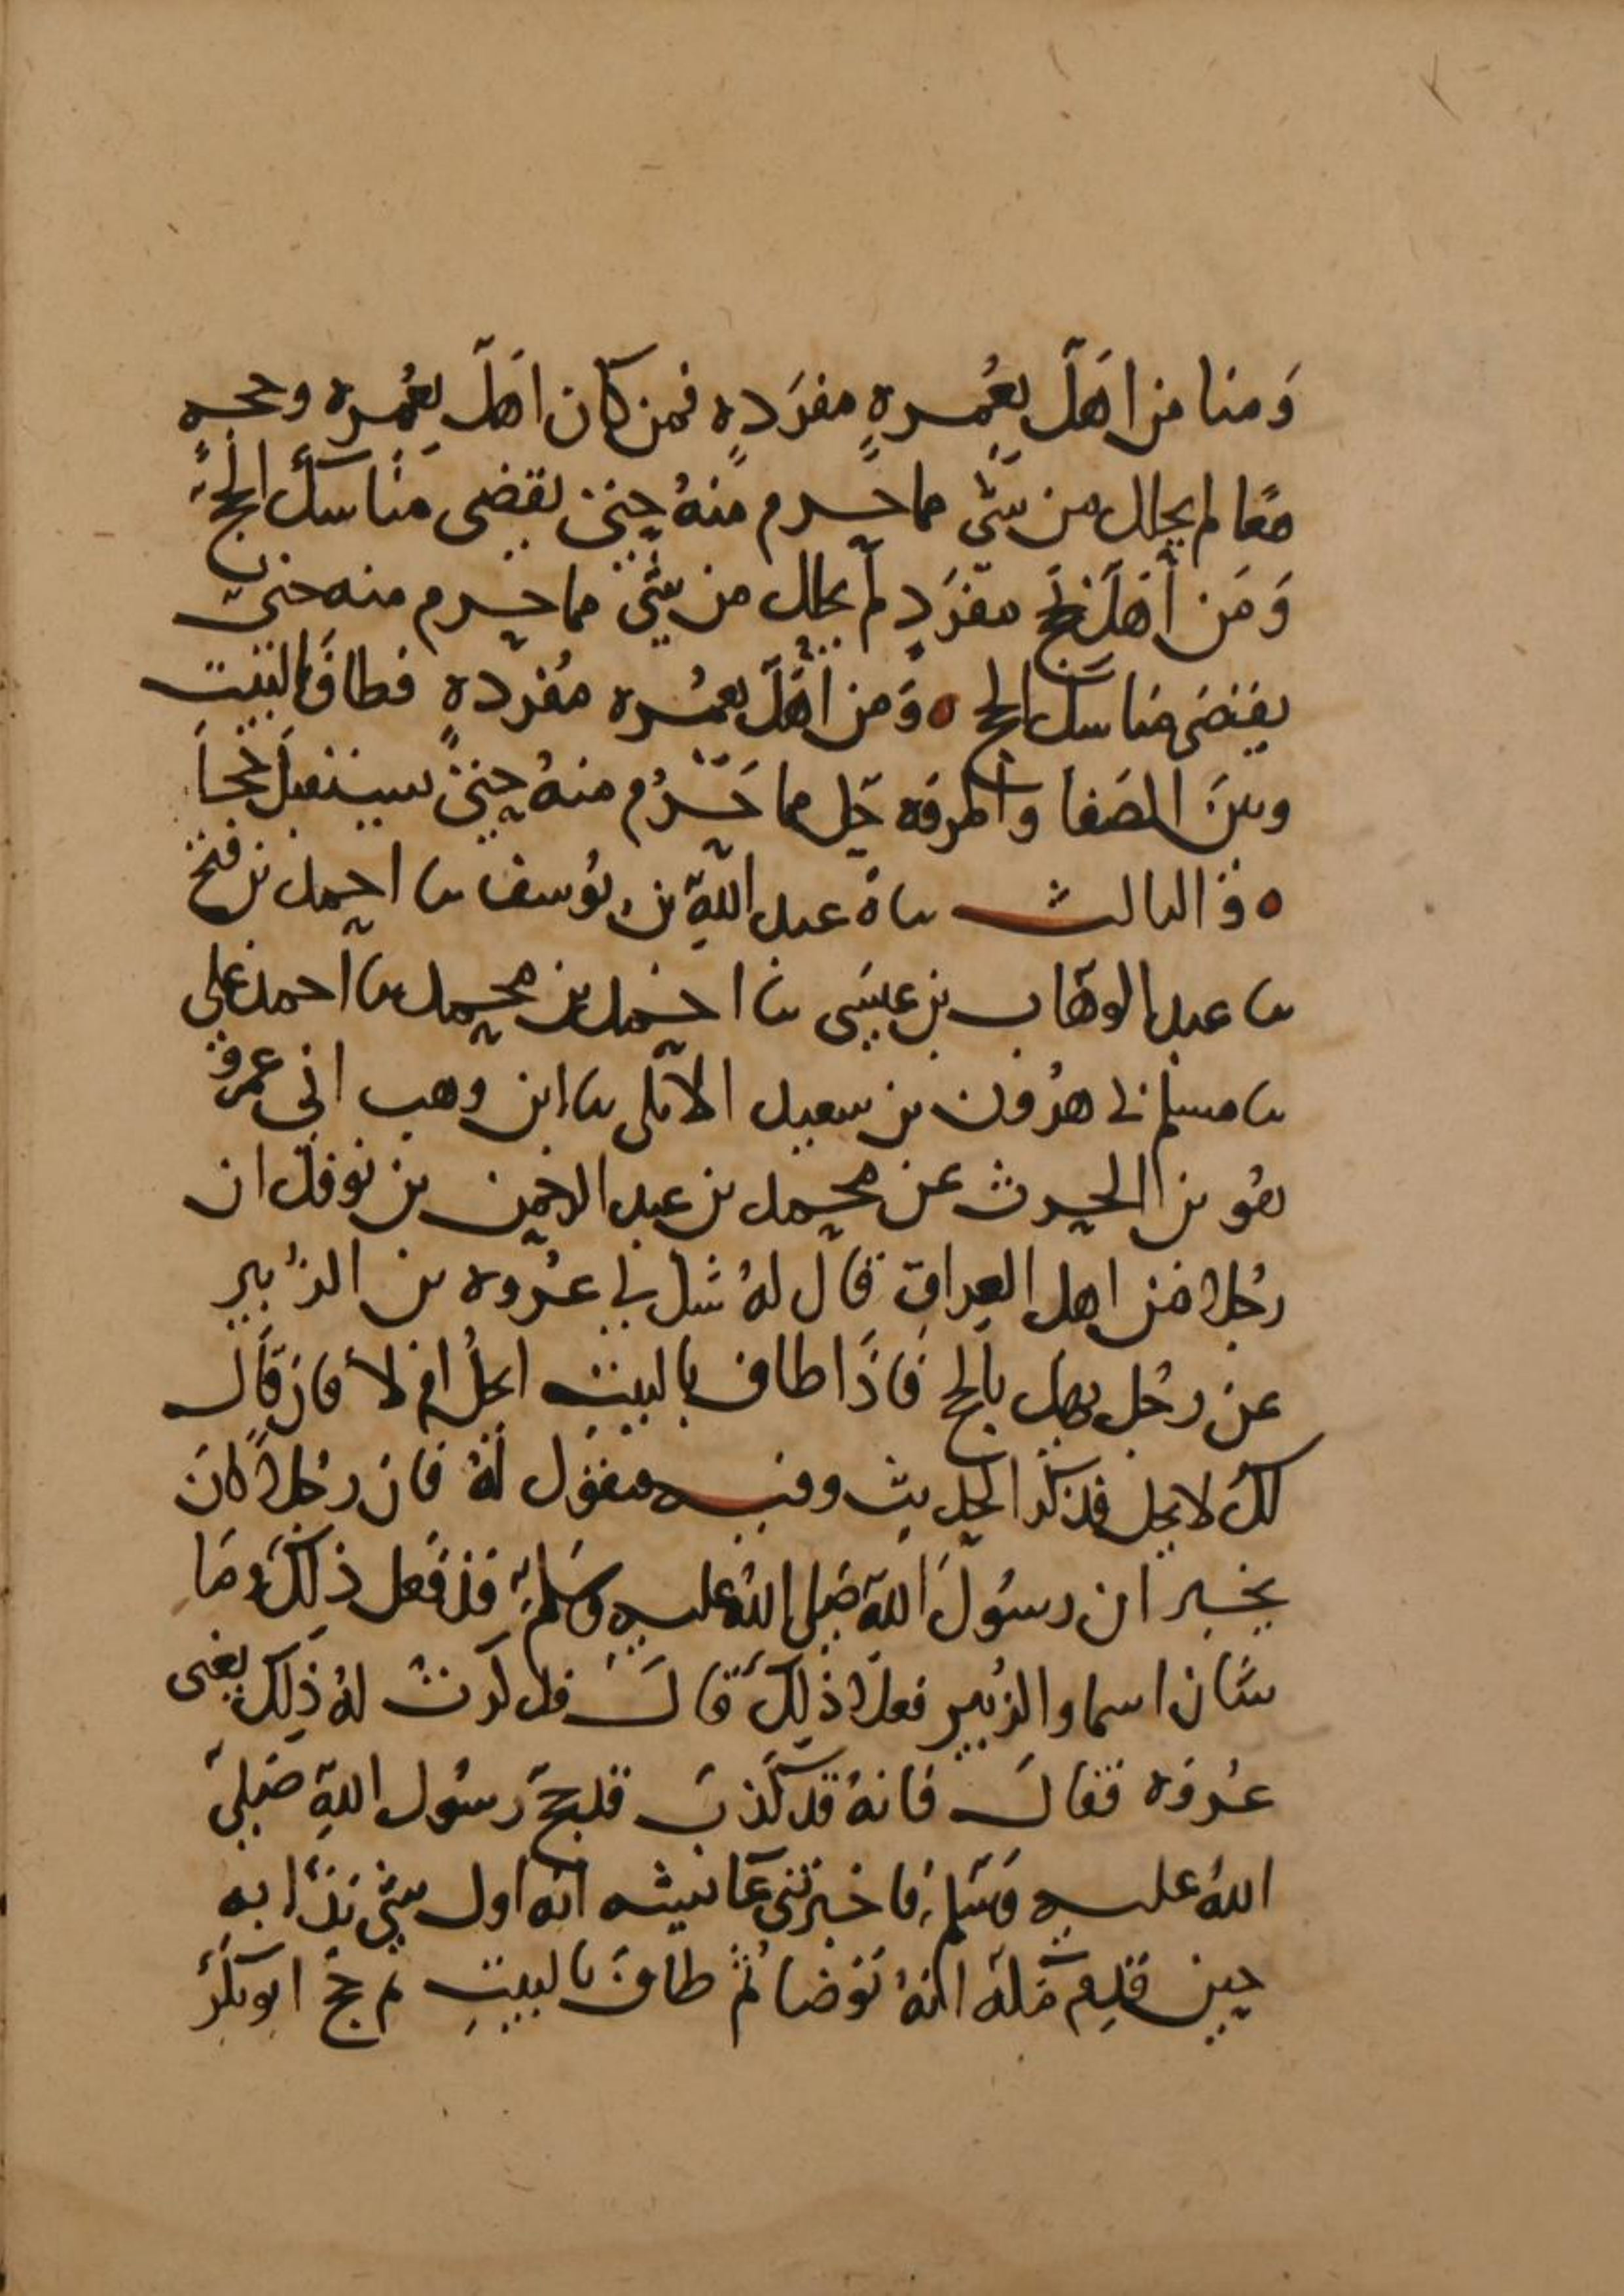 وَمنا من اهَلّ بعُمره مفرَده فمن كان اهلّ بعُمره وحجه
معًا لم يحلل من شي مما حرم منهُ حتى يقضى مناسك الحج
وَمَن أهَلّ بحج مفرَد لم يحلل من شي مما حرم منه حتى
يقضى مناسك الحج ه وَمن أهَلّ بعمُره مُفرده فطافَ بالبيت
وبينَ الصَفا والمروَه حَل مما حَرُم منهُ حتى يستقبلَ حجاً
ه وَالثالث ناه عبد اللهِ بن يُوسف نا احمد بن فتح
نا عبد الوهّاب بن عيسَى نا احمد بن محمد نا احمد بن علي
نا مسلم ني هرُون بن سعيد الايلى نا ابن وهب انى عمرو
هُو بن الحرث عن محمد بن عبد الرحمن بن نوفل ان
رجُلا من اهل العراق قال لهُ سَل لي عُروه بن الزُبير
عن رجُل يهل بالحج فاذَا طاف بالبيت ايحلُ ام لا فان قال
لكَ لا يحل فذكر الحديث وفيه فيقوُل لهُ فان رجُلاً كانَ
يخبر ان رسُولَ اللهِ صَلى اللهُ عليه وَسَلم قد فَعل ذلكَ وَمَا
شَان اسما والزُبير فعلا ذلِكَ قالَ فذكرتُ لهُ ذَلِكَ يعنى
عُروَه فقالَ فانهُ قد كَذبَ قد حجّ رسُول اللهِ صَلى
اللهُ عليه وَسَلم فاخبرتنى عَائيشه انّه اول شي بَدَأ به
حين قدِم مَكه انهُ توَضا ثُم طافَ بالبيتِ ثم حَجّ ابو بكرُ